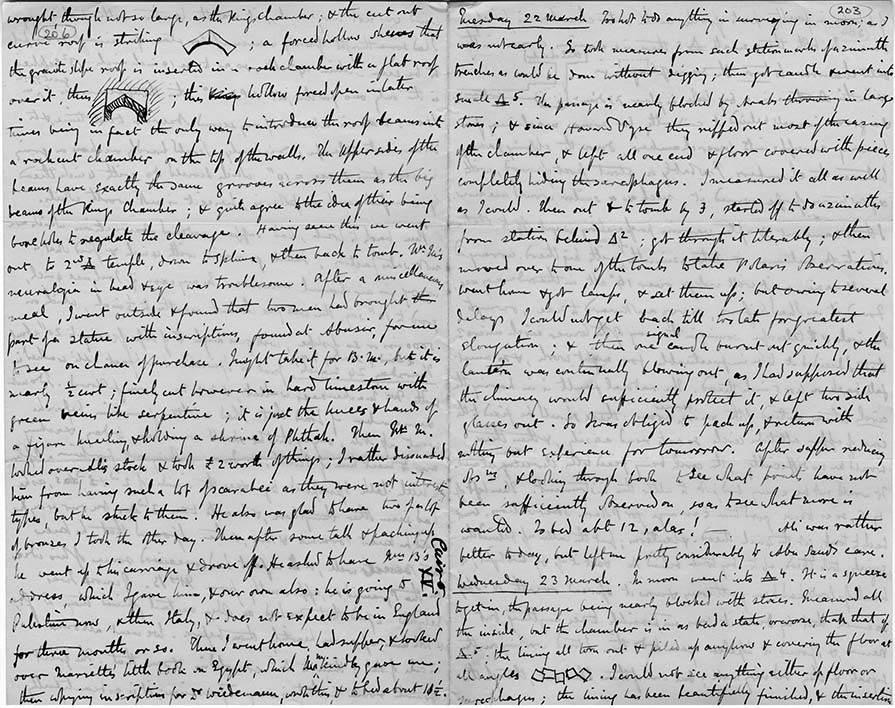 206
wrought though not so large, as the Kings chamber; & the cut out
curve roof is striking ; a forced hollow shews that
the granite slope roof is inserted in a rock chamber with a flat roof
over it, thus ; this hollow forced open in later
times being in fact the only way to introduce the roof beams into
a rock cut chamber on the top of the walls. The upper sides of the
beams have exactly the same grooves across them as the big
beams of the Kings Chamber; & quite agree to the idea of their being
bore holes to regulate the cleavage. Having seen this we went
out to 2nd Δ temple, down to Sphinx, & then back to tomb.
neuralgia in head & eye was troublesome. After a miscellaneous
meal, I went outside & found that two men had brought the
part of a statue with inscriptions, found at Abusir, for me
to see on chance of purchase. I might take it for B.M. but it is
nearly ½ cwt; finely cut however in hard limestone with
green veins like serpentine; it is just the knees & hands of
a figure kneeling & holding a shrine of Phttah. Then M.
looked over Ali's stock & took £2 worth of things; I rather dissuaded
him from having such a lot of scarabei as they were not
types, but he stuck to them. He also was glad to have two parts
of bronzes I took the other day. Then after some talk & packing up
he went up to his carriage & drove off. He asked to have Mrs B's
address which I gave him, & our own also: he is going to
Palestine now, & then Italy, & does not expect to be in England
for three months or so. Then I went home, had supper, & looked
over Mariette's little book on Egypt, which kindly gave me;
then copying inscriptions for Dr Wiedemann, wrote this, & to bed about 10½.
Cairo
XV.
203
Tuesday 22 March Too hot to do anything in surveying in noon; as I
was not early. So took measures from such station marks of azimuth
trenches as could be done without digging; then got candle & went into
small Δ 5. The passage is nearly blocked by Arabs throwing in large
stones; & since Howard Vyse they ripped out most of the casing
of the chamber, & left all one end & floor covered with pieces
completely hiding the sarcophagus. I measured it all as well
as I could. Then out & to tomb by 3, started off to do azimuths
from station behind Δ 2; got through it tolerably; & then
moved over to one of the tombs to take Polaris observations.
Went home & got lamps, & set them up; but owing to several
delays I could not get back till too late for greatest
elongation; & then one signal candle burnt out quickly, & the
lantern was continually blowing out, as I had supposed that
the chimney would sufficiently protect it, & left two side
glasses out. So I was obliged to pack up, & return with
nothing but experience for tomorrow. After supper reducing
obsns & looking through book to see what points have not
been sufficiently observed on, so as to see what more is
wanted. To bed abt 12, alas! — Ali was rather
better today, but left me pretty considerably to Abu Saud's care.
Wednesday 23 March. In morn went into Δ 4. It is a squeeze
to get in, the passage being nearly blocked with stones. Measured all
the inside, but the chamber is in as bad a state, or worse, than that of
Δ 5. the lining all torn out & piled up anyhow & covering the floor at
all angles . I could not see anything either of floor or
sarcophagus; the lining has been beautifully finished, & the insertion